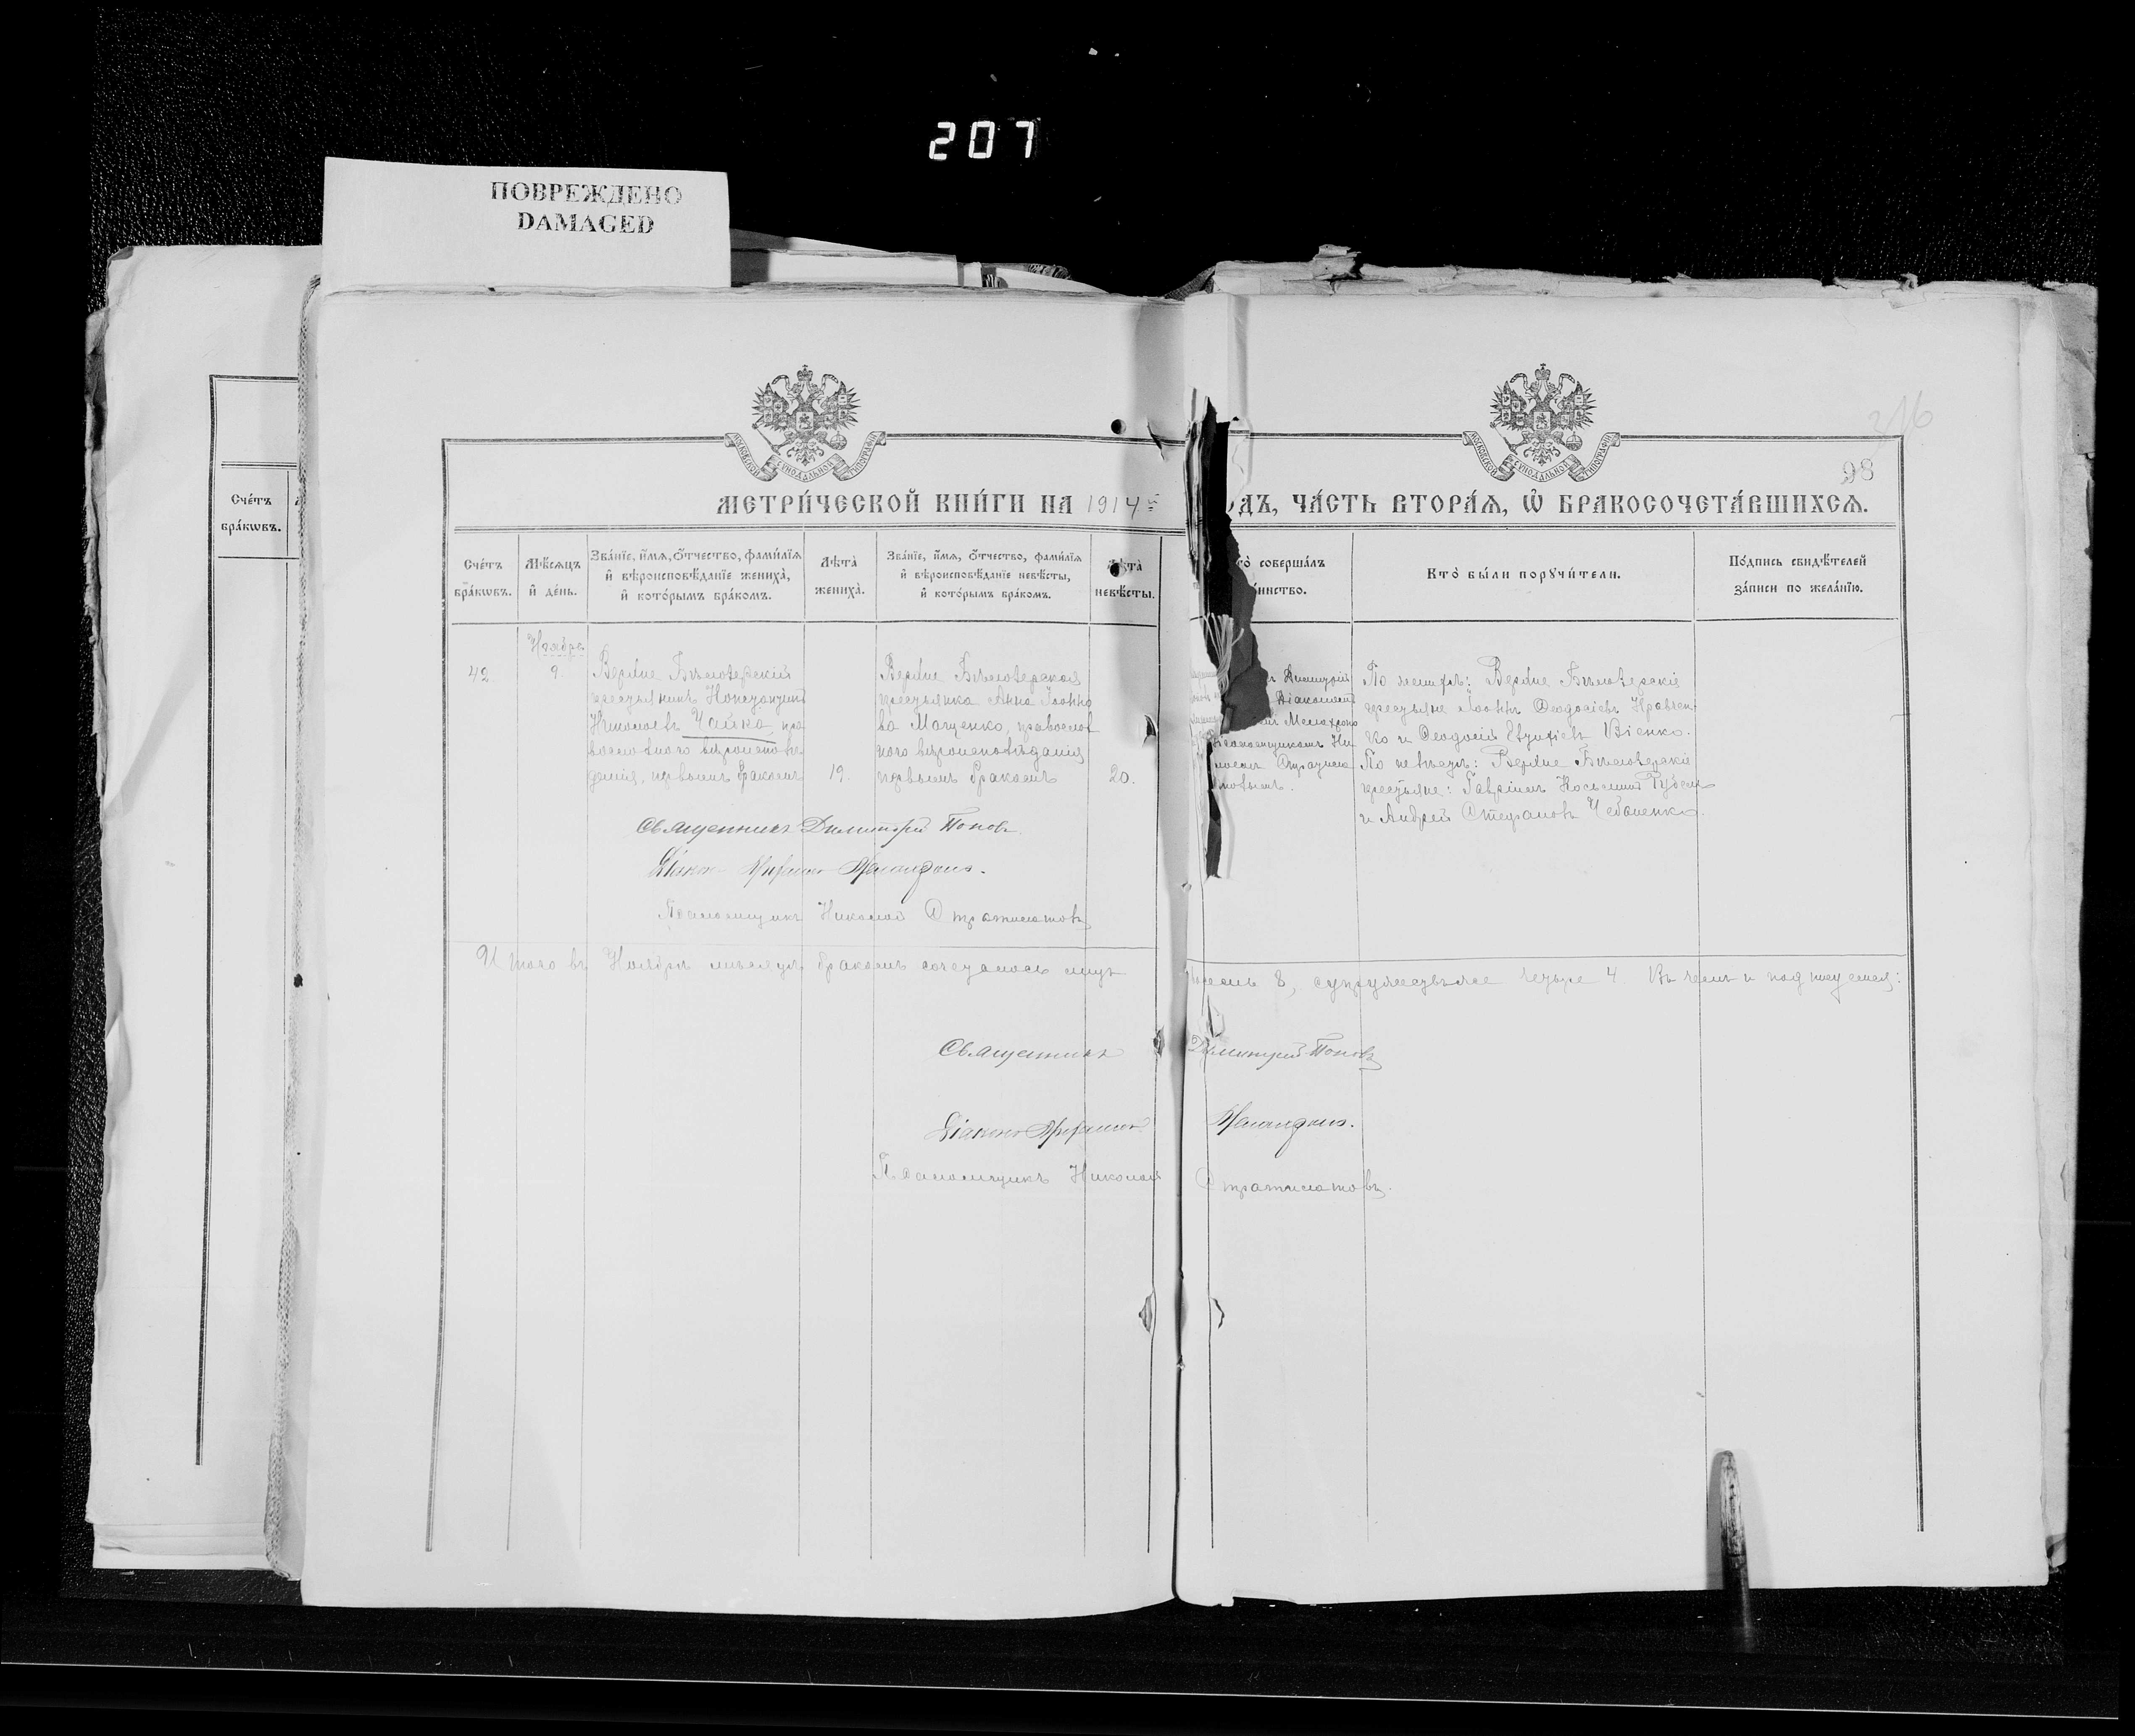 207
ПОВРЕЖДЕНО
DAMAGED
МОСКОВСКОЙ СѴНОДАЛЬНОЙ ТИПОГРАФІИ
МОСКОВСКОЙ СѴНОДАЛЬНОЙ ТИПОГРАФІИ
316
98
Сче́тъ
бра́кѡвъ.
МЕТРИ́ЧЕСКОЙ КНИ́ГИ НА 1914й
ДЪ, ЧА́СТЬ ВТОРА́Ѧ, Ѡ҆ БРАКОСОЧЕТА́ВШИХСѦ.
Сче́тъ
бра́кѡвъ.
Мѣ́сѧцъ
и҆ де́нь.
Зва́нїе, и҆́мѧ, ѻ҆́тчество, фами́лїѧ
и҆ вѣроисповѣ́данїе жениха̀,
и҆ кото́рымъ бра́комъ.
Лѣ́та
жениха̀.
Зва́нїе, и҆́мѧ, ѻ҆́тчество, фами́лїѧ
и҆ вѣроисповѣ́данїе невѣ́сты,
и҆ кото́рымъ бра́комъ.
Лѣ́та
невѣ́сты.
то̀ соверша́лъ
инство.
Кто̀ бы́ли порꙋчи́тели.
По́дпись свидѣ́телей
за́писи по жела́нїю.
Ноября
42.
9.
Верхне Бѣлозерскій
крестьянинъ Константинъ
Николаевъ Чайка, пра
вославнаго вѣроисповѣ
данія, первымъ бракомъ
19.
Верхне Бѣлозерская
крестьянка Анна Іоанно
ва Мащенко, православ
наго вѣроисповѣданія
первымъ бракомъ
20.
Димитрій
Діакономъ
Псаломщикомъ Ни
колаемъ Стратила
товымъ.
По женихѣ: Верхне Бѣлозерскіе
крестьяне Іоаннъ Ѳеодосіевъ Кравчен
ко и Ѳеодосій
По невѣстѣ: Верхне Бѣлозерскіе
крестьяне: Гавріилъ Косьминъ
и Андрей Стефановъ Чебаненко.
Священникъ Димитрій Поповъ.
Діаконъ
Псаломщикъ Николай Стратилатовъ
Итого въ Ноябрѣ мѣсяцѣ бракомъ сочеталось лицъ
восемь 8, супружествъ же четыре 4. Въ чемъ и подписуемся:
Священникъ Димитрій Поповъ
Діаконъ
Псаломщикъ Николай Стратилатовъ.